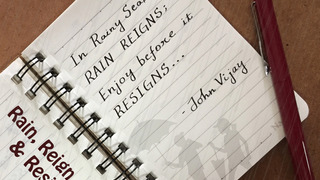 In Rainy Sea
RAIN REIGNS;
Enjoy before it
RESIGNS...
- John Vijay
Rain, Reign
& Resi